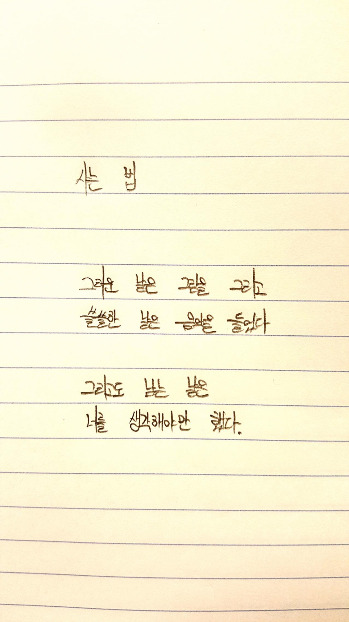 사는 법
그리운 날은 그림을 그리고
쓸쓸한 날은 음악을 들었다
그리고도 남는 날은
너를 생각해야만 했다.